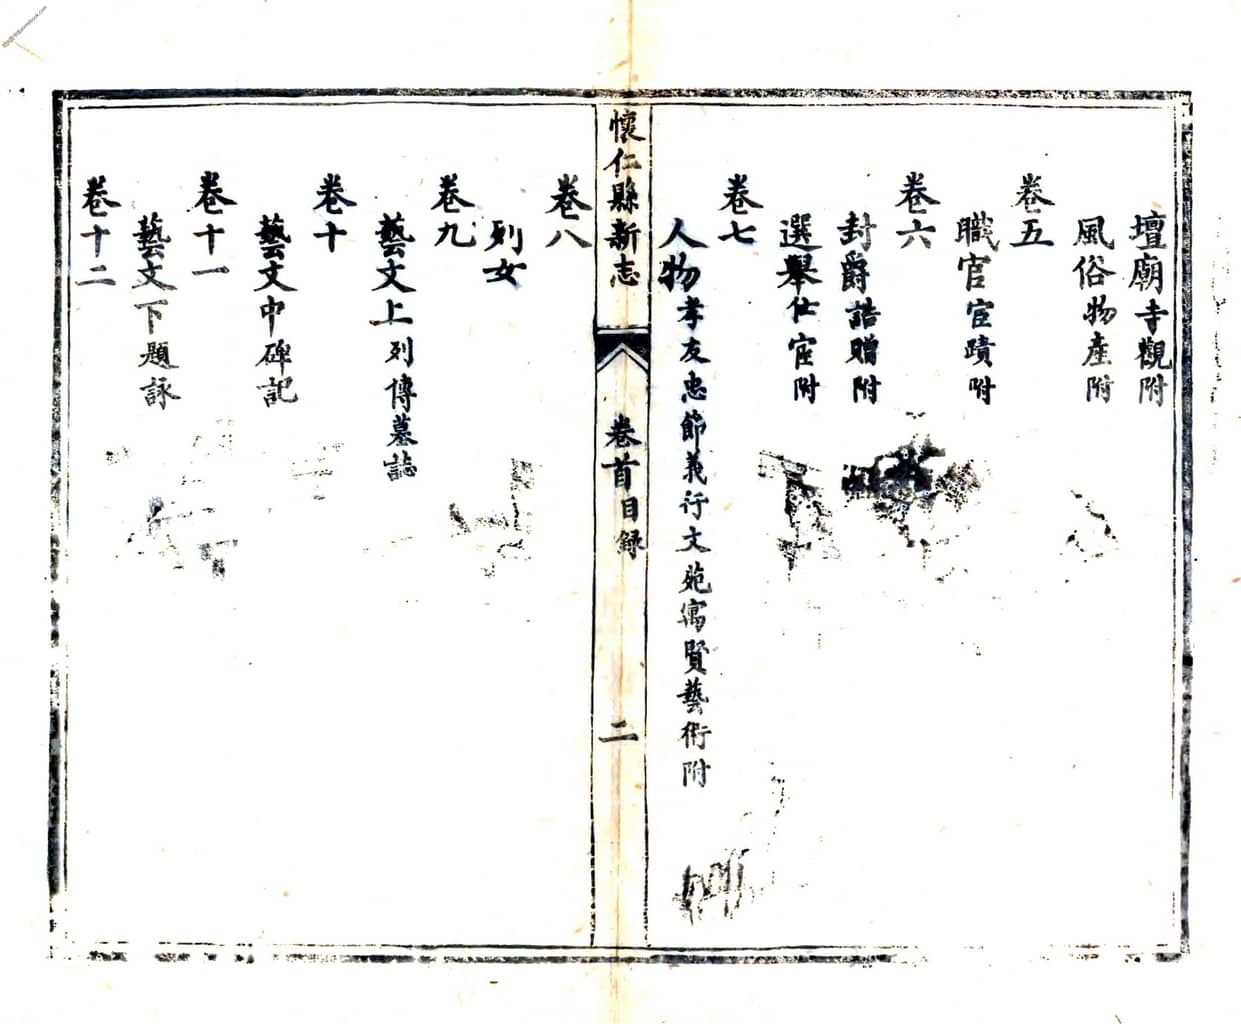 壇廟寺觀附
風俗物產附
卷五
職官宦蹟附
卷六
封爵誥贈附
選舉仕宦附
卷七
人物孝友忠節義行文苑寓賢藝術附
懷仁縣新志
卷首目録
二
卷八
列女
卷九
藝文上列傳墓誌
卷十
藝文中碑記
卷十一
藝文下題詠
卷十二